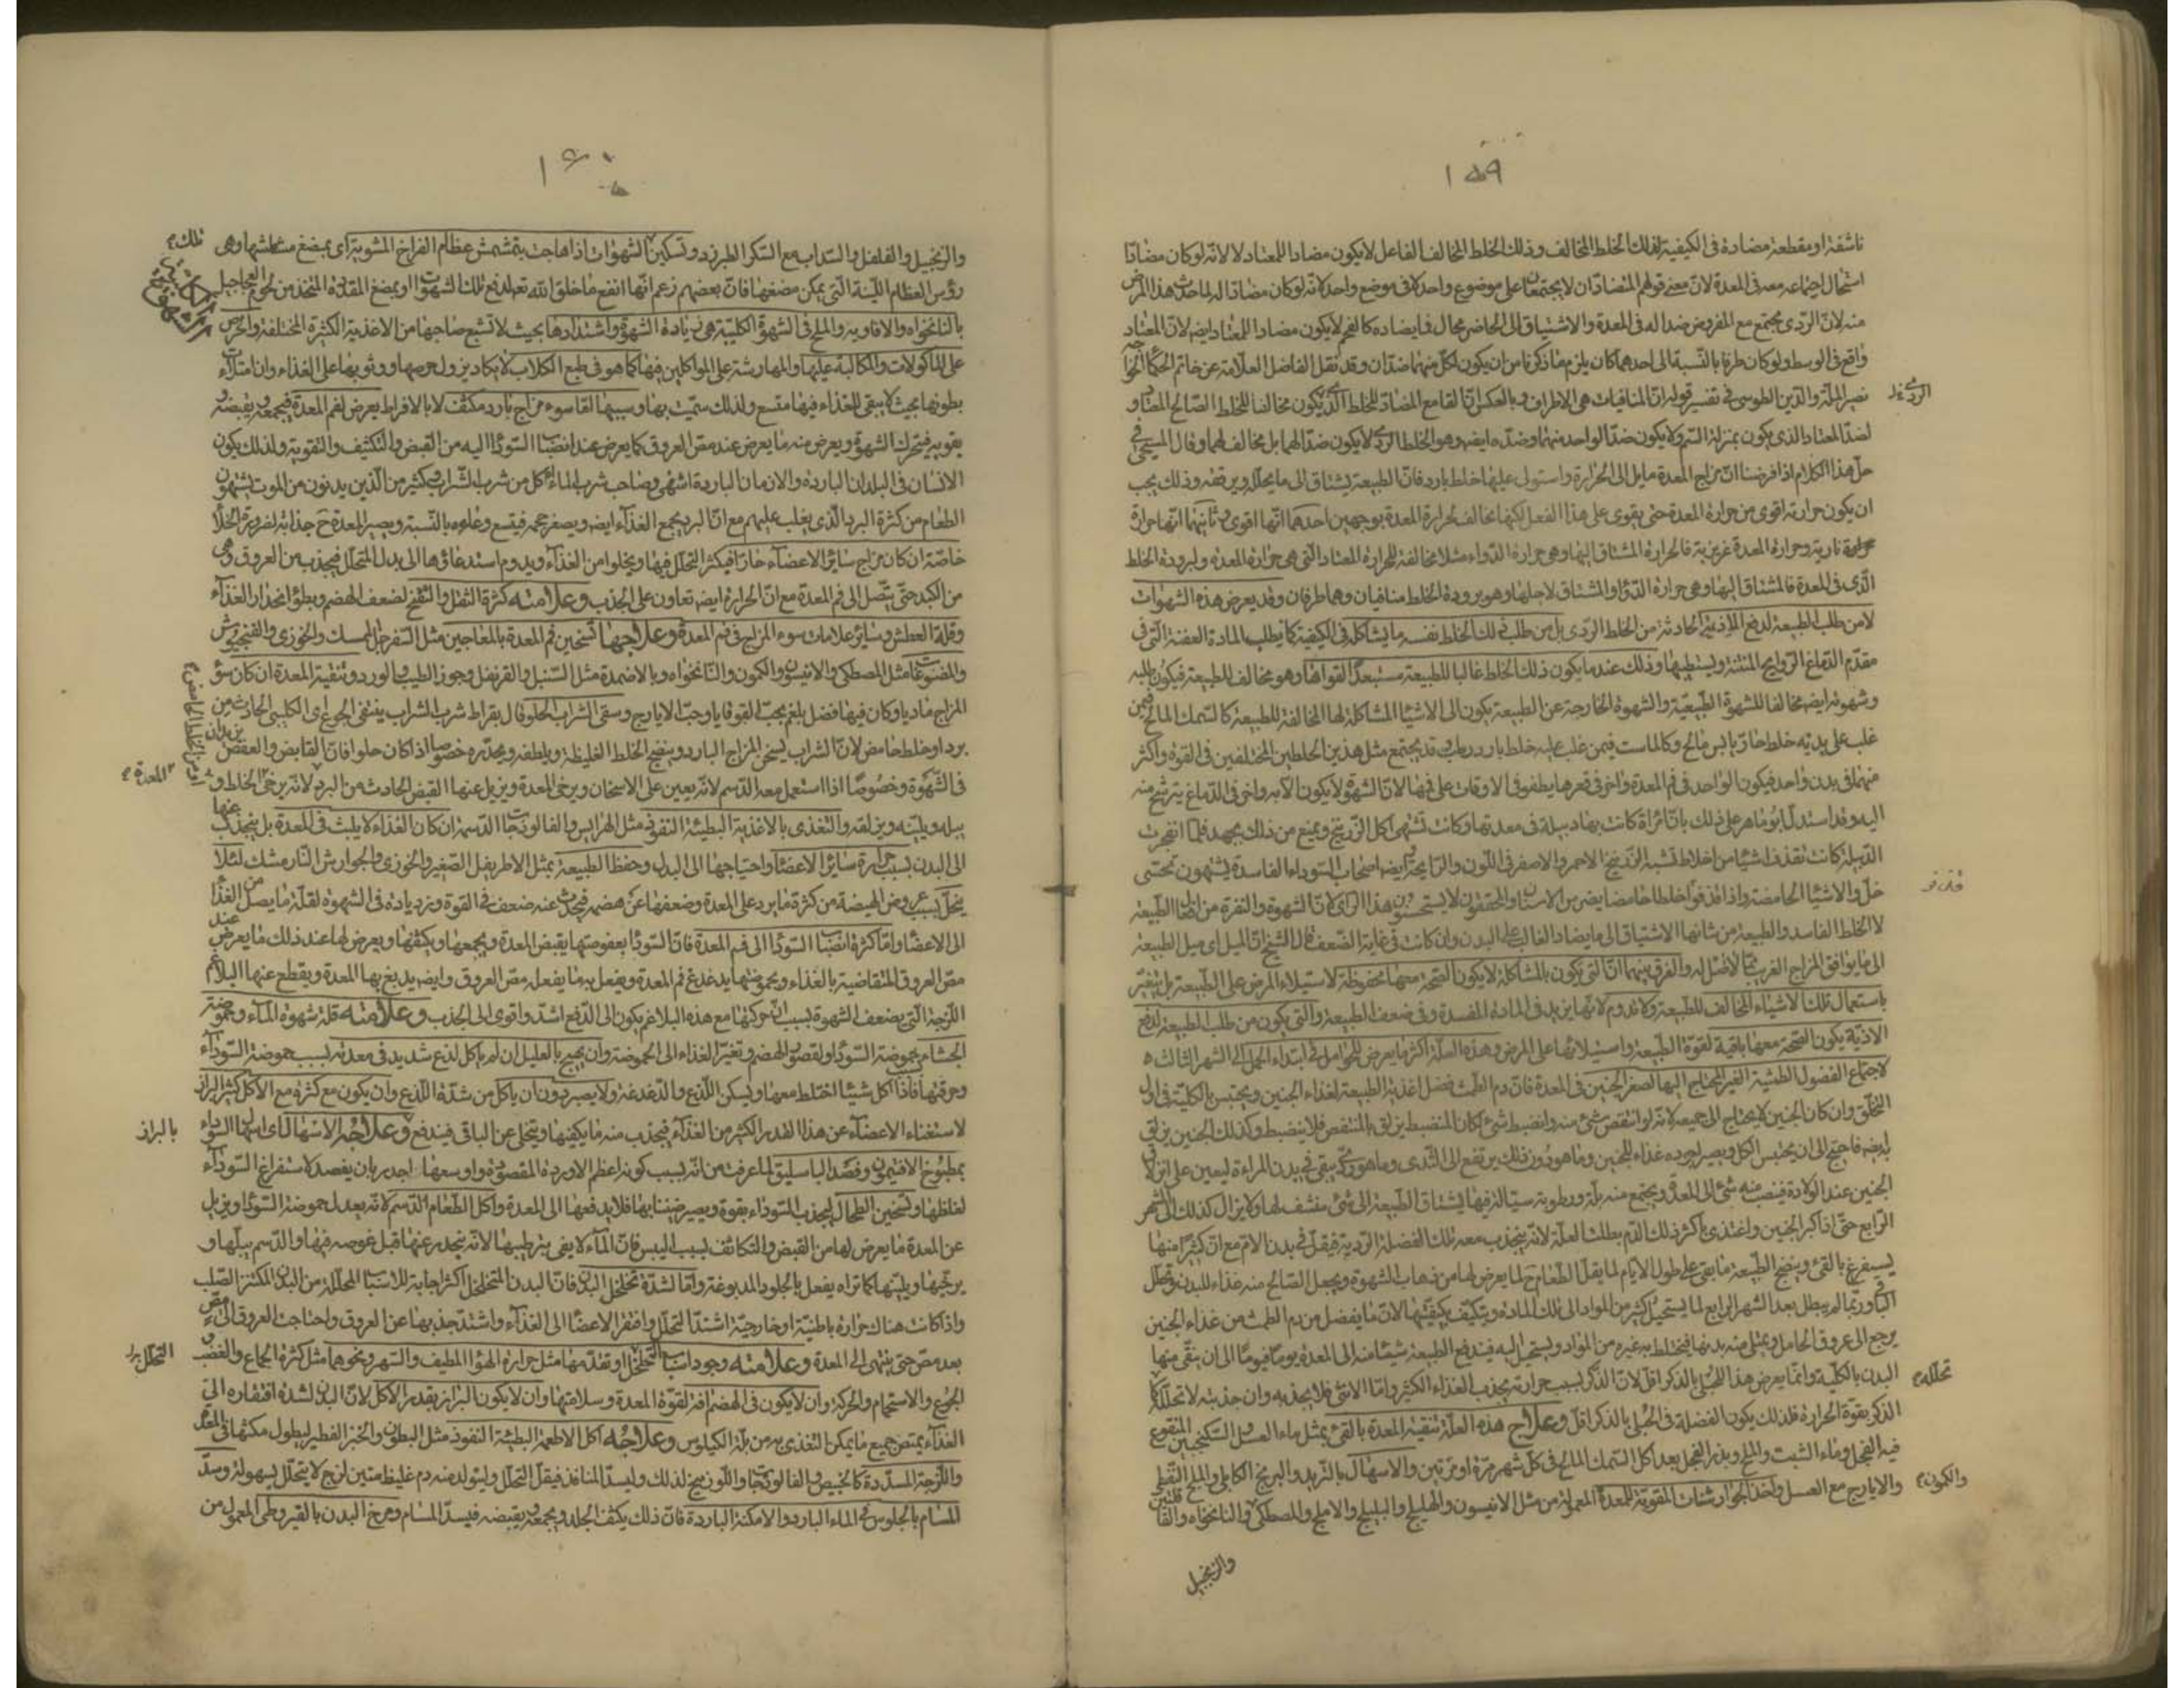 ١٥٩
ناشفة او مقطعة مضادة فى الكيفية لذلك الخلط المخالف وذلك الخلط المخالف الفاعل لا يكون مضادا للمعتاد لا لانه لو كان مضادا
استحال اجتماعه معه فى المعدة لان معنى قولهم المتضادان لا يجتمعان على موضوع واحد لا فى موضع واحد لا لانه لو كان مضادا له لما حدث هذا المرض
منه لان الردى يجتمع مع المفروض ضدا له فى المعدة والاشتياق الى الحاضر محال فايضاده كالفحم لا يكون مضادا للمعتاد ايضه لان المعتاد
واقع فى الوسط ولو كان طرفا بالنسبة الى احدهما كان يلزم مما ذكرنا من ان يكون لكل منهما ضدان وقد نقل الفاضل العلامة عن خاتم الحكماء
نصير الملة والدين الطوسى فى تفسير قوله ان المنافيات هى الاطراف وبالعكس ان القامع المضاد للخلط الذى يكون مخالفا للخلط الصالح المعتاد
لضد المعتاد الذى يكون بمنزلة السم ولا يكون ضد الواحد منهما وضده ايضه وهو الخلط الردى لا يكون ضدا لهما بل مخالف لهما وقال المسيحى فى
حل هذا الكلام اذا فرضنا ان مزاج المعدة مايل الى الحرارة واستولى عليها خلط بارد فان الطبيعة يشتاق الى ما يحلله ويرققه وذلك يجب
ان يكون حرارته اقوى من حرارة المعدة حتى يقوى على هذا الفعل لكنها مخالف لحرارة المعدة بوجهين احدهما انها اقوى وثانيهما انها حرارة
نارية وحرارة المعدة غريزية فالحرارة المشتاق اليها وهى حرارة الدواء مثلا مخالفة للحرارة المعتاد التى هى حرارة المعدة ولبرودة الخلط
الذى فى المعدة فالمشتاق اليها وهى حرارة الدواء والمشتاق لاجلها وهو برودة الخلط منافيان وهما طرفان وقد يعرض هذه الشهوات
لا من طلب الطبيعة لدفع الاذية الحادثة من الخلط الردى بل من طلب ذلك الخلط نفسه ما يشاكله فى الكيفية كما يطلب المادة العفنة التى فى
مقدم الدماغ الروايح المنتنة ويستطيبها وذلك عند ما يكون ذلك الخلط غالبا للطبيعة مستبعدا لقواها وهو مخالف للطبيعة فيكون طلبه
وشهوته ايضه مخالفا للشهوة الطبيعية والشهوة الخارجة عن الطبيعة يكون الى الاشياء المشاكلة لها المخالفة للطبيعة كالسمك المالح فيمن
غلب على بدنه خلط حار يابس مالح وكالماست فيمن غلب عليه خلط بارد رطب وقد يجتمع مثل هذين الخلطين المختلفين فى القوة واكثر
منهما فى بدن واحد فيكون الواحد فى فم المعدة واخر فى قعرها يطفو فى الاوقات على فمها لان الشهوة لا يكون الا به واخر فى الدماغ يترشح منه
اليه وقد استدل ابو ماهر على ذلك بان امراة كانت بها دبيلة فى معدتها وكانت تشتهى اكل الزرنيخ ويمنع من ذلك بجهد فلما انفجرت
الدبيلة كانت تقذف اشياء من اخلاط تشبه الزرنيخ الاحمر والاصفر فى اللون والرايحة وايضه اصحاب السوداء الفاسدة يشتهون تحسى
خل والاشياء الحامضة واذا قذفوا اخلاطا حامضا يضرس الاسنان والمحققون لا يستحسنون هذا الراى لان الشهوة والنفرة من افعال الطبيعة
لا الخلط الفاسد والطبيعة من شانها الاشتياق الى ما يضاد الغالب على البدن وان كانت فى غاية الضعف قال الشيخ ان الميل اى ميل الطبيعة
الى ما يوافق المزاج الغريب مما لا اصل له والفرق بينهما ان التى يكون بالمشاكلة لا يكون الصحة معها محفوظة لاستيلاء المرض على الطبيعة بل يتغير
باستعمال تلك الاشياء المخالف للطبيعة ولا تدوم لانها يزيد فى المادة المفسدة وفى ضعف الطبيعة والتى يكون من طلب الطبيعة لدفع
الاذية يكون الصحة معها باقية لقوة الطبيعة واستيلائها على المرض وهذه العلة اكثر ما يعرض للحوامل فى ابتداء الحمل الى الشهر الثالث
لاجتماع الفضول الطمثية الغير المحتاج اليها لصغر الجنين فى المعدة فان دم الطمث فضل اغذية الطبيعة لغذاء الجنين ويحتبس بالكلية فى اول
التخلق وان كان الجنين لا يحتاج الى جميعه لانه لو انتقص شئ منه وانضبط شئ لكان المنضبط يزلق بالمنتفض فلا ينضبط وكذلك الجنين يزلق
ايضه فاحتيج الى ان يحتبس الكل ويصير اجوده غذاء للجنين وما هو دون ذلك يرتفع الى الثدى وما هو ردى يبقى فى بدن المراءة ليعين على ازلاق
الجنين عند الولادة فينصب منه شئ الى المعدة ويجتمع منه بلة ورطوبة سيالة فيها يشتاق الطبيعة الى شئ منشف لها ولا يزال كذلك الى الشهر
الرابع حتى اذا كبر الجنين واغتذى باكثر ذلك الدم بطلت العلة لانه ينجذب معه تلك الفضلة الردية فيقل فى بدن الام مع ان كثيرا منها
يستفرغ بالقئ وينضج الطبيعة ما بقى على طول الايام لما يقل الطعام ح لما يعرض لها من ذهاب الشهوة ويجعل الصالح منه غذاء للبدن وتحلل
الباقى وربما لم يبطل بعد الشهر الرابع لما يستحيل كثير من المواد الى تلك المادة ويتكيف بكيفيتها لان ما يفضل من دم الطمث من غذاء الجنين
يرجع الى عروق الحامل ويمتلى منه بدنها فيختلط به غيره من المواد ويستحيل اليه فيدفع الطبيعة شيئا منه الى المعدة يوما فيوما الى ان ينقى منها
البدن بالكلية وانما يعرض هذا للحبلى بالذكر اقل لان الذكر لسبب حرارته يجذب الغذاء الكثير واما الانثى فلا يجذبه وان جذبته لا تحلله كما
الذكر بقوة الحرارة فلذلك يكون الفضلة فى الحبلى بالذكر اقل وعلاج هذه العلة تنقية المعدة بالقئ بمثل ماء العسل والسكنجبين المنقوع
فيه الفجل وماء الشبت والملح وبذر الفجل بعد اكل السمك المالح فى كل شهر مرة او مرتين والاسهال بالتربد والبرنج الكابلى والملح النفطى
والايارج مع العسل واخذ الجوارشنات المقوية للمعدة المعمولة من مثل الانيسون والهليلج والبليلج والاملج والمصطكى والنانخواه والقاقلتين
والكمون
تحلله
والزنجبيل
١٦٠
والزنجبيل والفلفل والسداب مع السكر الطبرزد وتسكين الشهوات اذا هاجت بتمشمش عظام الفراخ المشوية اى بمضغ مشاشها وهى
رؤس العظام اللينة التى يمكن مضغها فان بعضهم زعم انها انفع ما خلق الله تعه لدفع تلك الشهوات او بمضغ المقدد المتخذ من لحوم العجاجيل
بالنانخواه والافاويه والملح فى الشهوة الكلبية هى زيادة الشهوة واشتدادها بحيث لا تشبع صاحبها من الاغذية الكثيرة المختلفة والحرص
على الماكولات والمكالبة عليها والمهارشة على المواكلين فيها كما هو فى طبع الكلاب لا يكاد يزول حرصها ووثوبها على الغذاء وان امتلات
بطونها بحيث لا يبقى للغذاء فيها متسع ولذلك سميت بها وسببها اما سوء مزاج بارد مكثف لا بالافراط يعرض لفم المعدة فيجمعه ويقبضه و
يقويه فيتحرك الشهوة ويعرض منه ما يعرض عند مص العروق كما يعرض عند انصباب السوداء اليه من القبض والتكثيف والتقوية ولذلك يكون
الانسان فى البلدان الباردة والازمان الباردة اشهى وصاحب شرب الماء اكل من شرب الشراب وكثير من الذين يدنون من الموت يشتهون
الطعام من كثرة البرد الذى يغلب عليهم مع ان البرد يجمع الغذاء ايضه ويصغر حجمه فيتسع وعاءه بالنسبة ويصير المعدة ح جذابة لضرورة الخلاء
خاصة ان كان مزاج سائر الاعضاء حارا فيكثر التحلل فيها ويخلوا من الغذاء ويدوم استدعاؤها الى بدل المتحلل فيجذب من العروق وهى
من الكبد حتى يتصل الى فم المعدة مع ان الحرارة ايضه تعاون على الجذب وعلامته كثرة الثفل والنفخ لضعف الهضم وبطؤ انحدار الغذاء
وقلة العطش وسائر علامات سوء المزاج فى فم المعدة وعلاجها تسخين فم المعدة بالمعاجين مثل السفرجلى الممسك والخوزى والفنجنوش
والسفوفات مثل المصطكى والانيسون والكمون والنانخواه وبالاضمدة مثل السنبل والقرنفل وجوز الطيب والورد وتنقية المعدة ان كان سوء
المزاج ماديا وكان فيها فضل بلغم بحب القوقايا وحب الايارج وسقى الشراب الحلو قال بقراط شرب الشراب ينفى الجوع اى الكلبى الحادث من
برد او خلط حامض لان الشراب يسخن المزاج البارد وينضج الخلط الغليظة ويلطفه ويحدره خصوصا اذا كان حلوا فان القابض والعفص يزيدان
فى الشهوة وخصوصا اذا استعمل معه الدسم لانه يعين على الاسخان ويرخى المعدة ويزيل عنها القبض الحادث من البرد لانه يرخى الخلط و
يبله ويلينه ويزلقه والتغذى بالاغذية البطيئة النفوذ مثل الهرايس والفالوذجات الدسمة ان كان الغذاء لا يلبث فى المعدة بل ينجذب عنها
الى البدن بسبب حرارة سائر الاعضاء واحتياجها الى البدل وحفظ الطبيعة بمثل الاطريفل الصغير والخوزى والجوارش النارمشك لئلا
ينحل بسبب عروض الهيضة من كثرة ما يرد على المعدة وضعفها عن هضمه فيحدث عنه ضعف فى القوة ويزد يادة فى الشهوة لقلة ما يصل من الغذاء
الى الاعضاء واما كثرة انصباب السوداء الى فم المعدة فان السوداء بعفوصتها يقبض المعدة ويجمعها ويكثفها ويعرض لها عند ذلك ما يعرض عند
مص العروق المتقاضية بالغذاء وبحموضتها يدغدغ فم المعدة ويفعل به ما يفعله مص العروق وايضه يدبغ بها المعدة ويقطع عنها البلاغم
اللزجة التى يضعف الشهوة بسبب ان حركتها مع هذه البلاغم يكون الى الدفع اشد واقوى الى الجذب وعلامته قلة شهوة الماء وحموضة
الجشاء بحموضة السوداء ولقصور الهضم وتغير الغذاء الى الحموضة وان يحس العليل ان لم ياكل لذع شديد فى معدته بسبب حموضة السوداء
وحرقتها فاذا اكل شيئا اختلط معها ويسكن اللذع والدغدغة ولا يصبر دون ان ياكل من شدة اللذع وان يكون مع كثرة مع الاكل كثير البراز
لاستغناء الاعضاء عن هذا القدر الكثير من الغذاء فيجذب منه ما يكفيها ويتخلى عن الباقى فيندفع وعلاجه الاسهال اى اسهال السوداء
بمطبوخ الافتيمون وفصد الباسليق لما عرفت من انه بسبب كونه اعظم الاوردة المقصودة واوسعها اجدر بان يفصد لاستفراغ السوداء
لغلظها وتسخين الطحال ليجذب السوداء بقوة ويصير ضنينا بها فلا يدفعها الى المعدة واكل الطعام الدسم لانه يعدل حموضة السوداء ويزيل
عن المعدة ما يعرض لها من القبض والتكاثف بسبب اليبس فان الماء لا يفى بترطيبها لانه ينحدر عنها قبل غوصه فيها والدسم يبلها و
يرخيها ويلينها كما تراه يفعل بالجلود المدبوغة واما لشدة تخلخل البدن فان البدن المتخلخل اكثر اجابة للاسباب المحللة من البدن المكتنز الصلب
واذا كانت هناك حرارة باطنية او خارجية اشتد التحلل وافتقر الاعضاء الى الغذاء واشتد جذبها عن العروق واحتاجت العروق الى مص
بعد مص حتى ينتهى الى المعدة وعلامته وجود اسباب التخلخل وتقدمها مثل حرارة الهواء المطيف والسهر ونحوهما مثل كثرة الجماع والغضب و
الجوع والاستحمام والحركة وان لا يكون فى الهضم افة لقوة المعدة وسلامتها وان لا يكون البراز بقدر الاكل لان البدن لشدة افتقاره الى
الغذاء يمتص جميع ما يمكن التغذى به من بلة الكيلوس وعلاجه اكل الاطعمة البطيئة النفوذ مثل البطون والخبز الفطير ليطول مكثها فى المعدة
واللزجة المسددة كالخبيص والفالوذجات واللوزينج لذلك وليسد المنافذ فيقل التحلل وليتولد منه دم غليظ متين لزج لا يتحلل بسهولة وسد
المسام بالجلوس فى الماء البارد والامكنة الباردة فان ذلك يكثف الجلد ويجمعه ويقبضه فيسد المسام ومرخ البدن بالقيروطى المعمول من
تلك
المعدة
بالبراز
التحلل